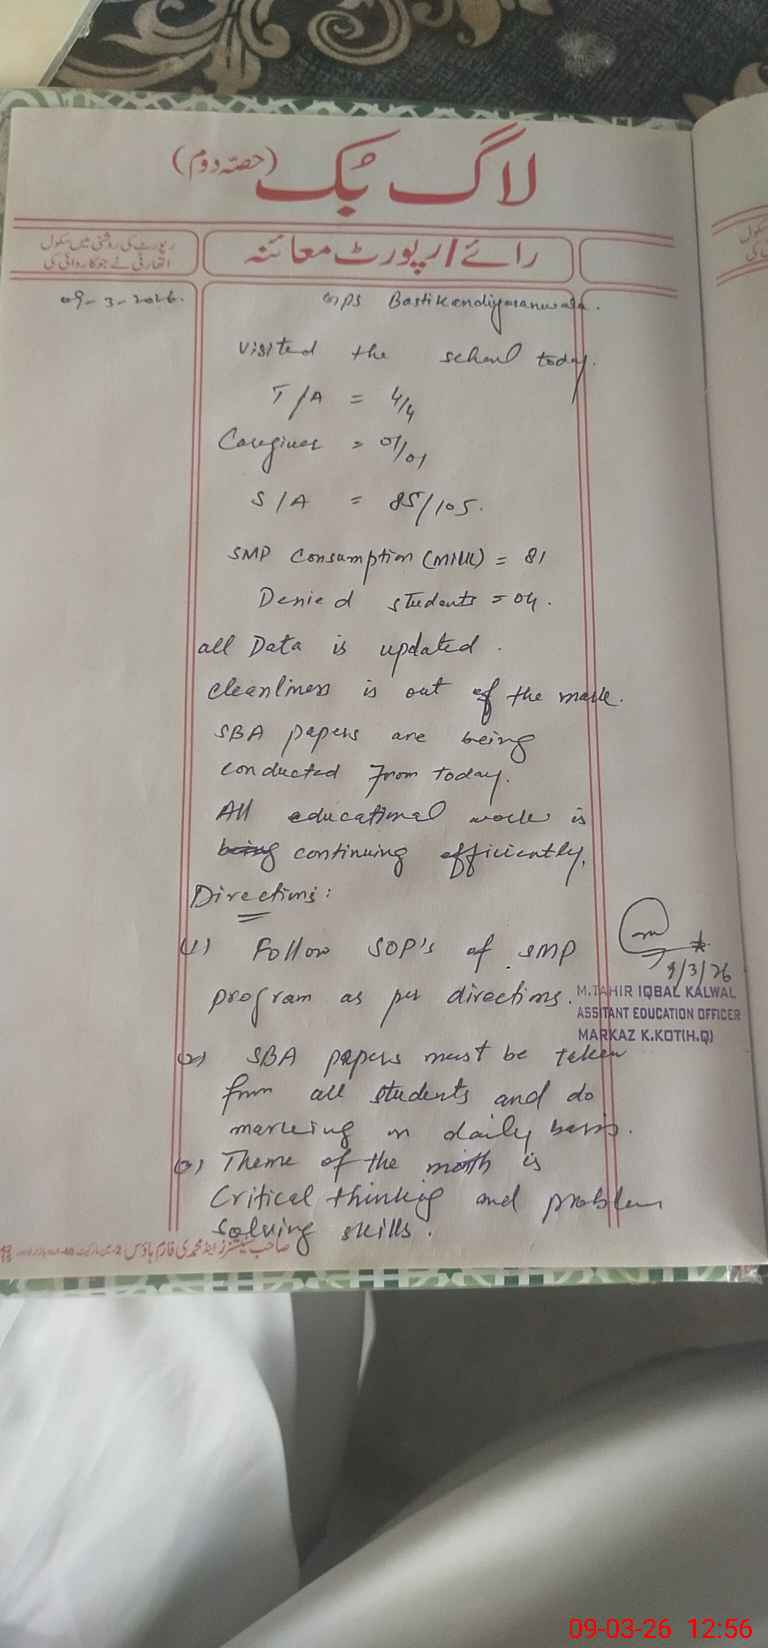 لاگ بُک (حصّہ دوم)
رائے/رپورٹ معائنہ
رپورٹ کی روشنی میں سکول
اتھارٹی نے جو کاروائی کی
09-3-2026.
GPS
visited the school today.
T/A = 4/4
Caregiver = 01/01
S/A = 85/105.
SMP Consumption (Milk) = 81
Denied students = 04.
all Data is updated.
cleanliness is out of the mark.
SBA papers are being
conducted from today.
All educational work is
being continuing efficiently.
Directions:
(1) Follow SOP's of SMP
program as per directions.
9/3/26
M.TAHIR IQBAL KALWAL
ASSITANT EDUCATION OFFICER
MARKAZ K.KOT(H.Q)
(2) SBA papers must be taken
from all students and do
marking on daily basis.
(3) Theme of the month is
Critical thinking and problem
solving skills.
09-03-26 12:56